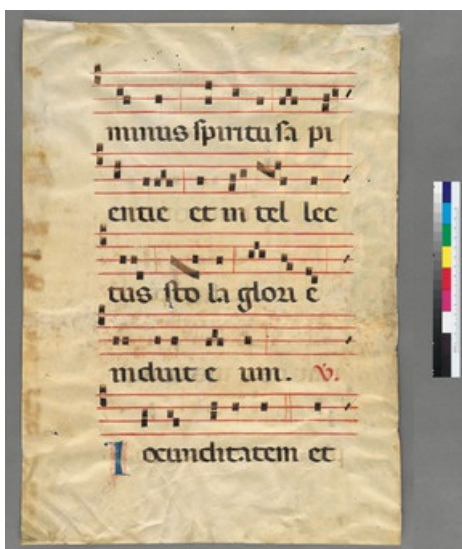 minus spiritu sa pi
entie et in tel lec
tus sto la glori e
induit e um. V.
Iocunditatem et